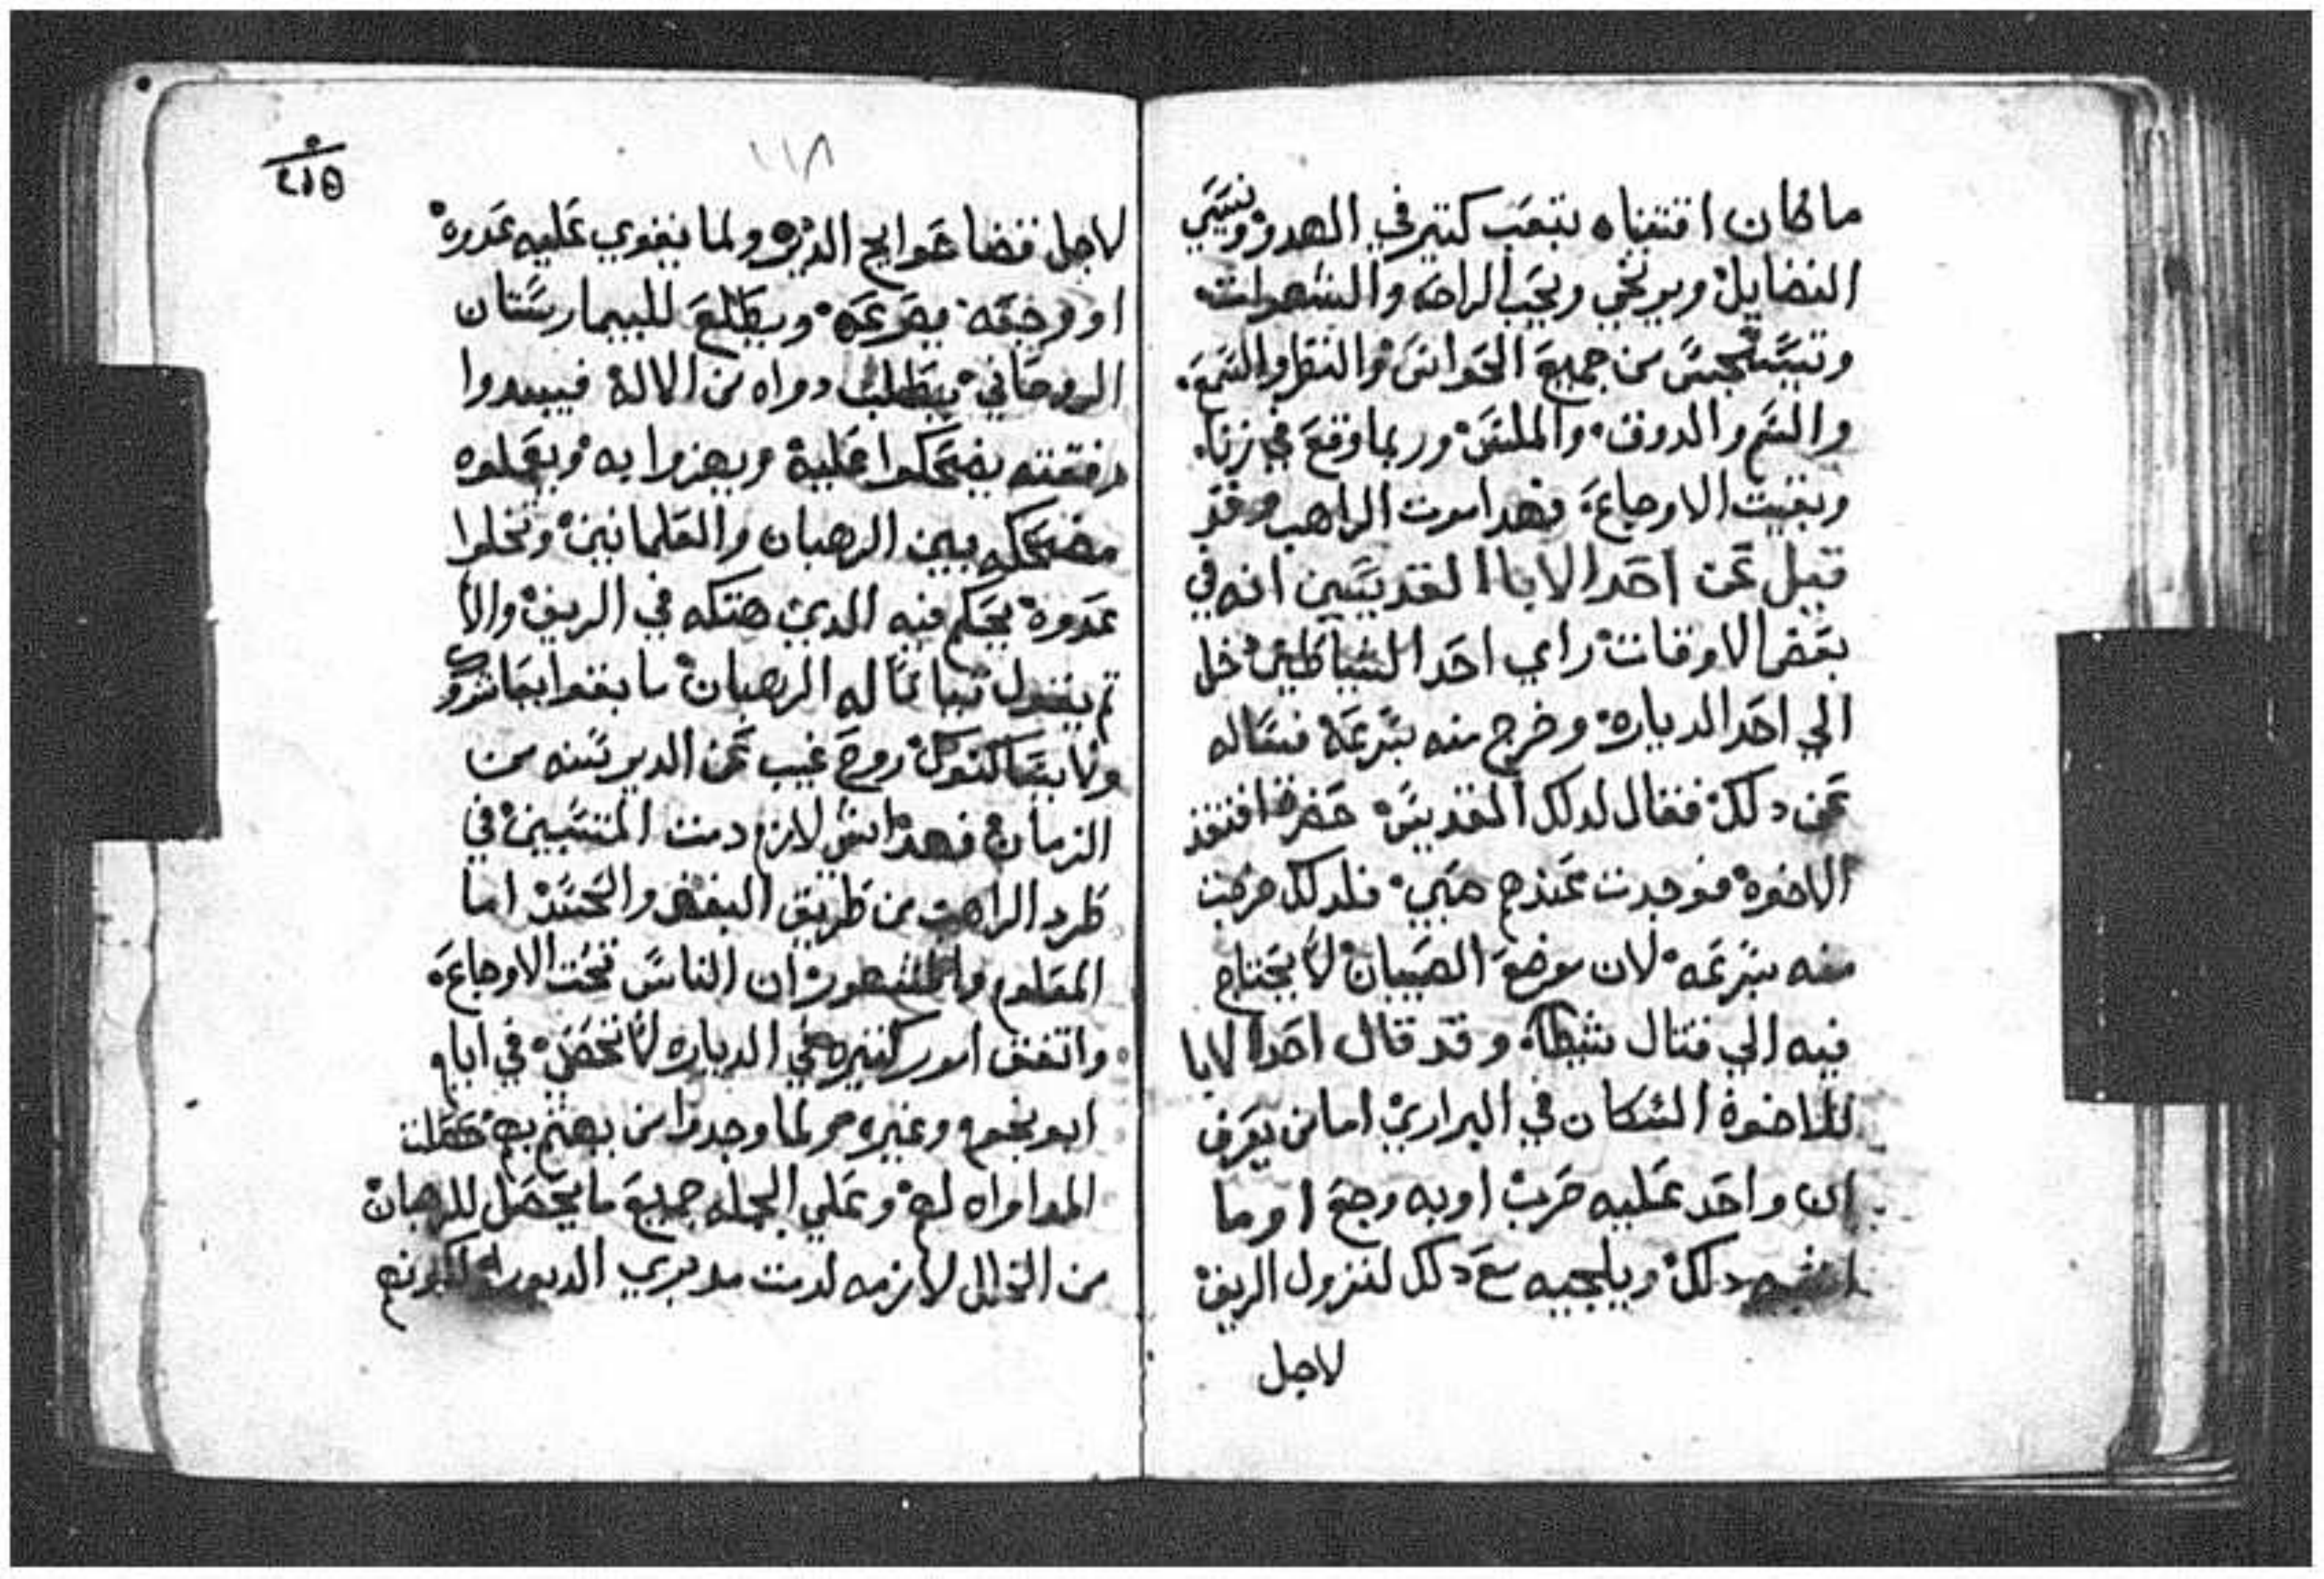 ما كان اقتناه بتعب كتير في الهدو ونسي
الفضايل ويرتخي ويحب الراحه والشهوات
وتيستحبس من جميع الحواس والنظر والسمع
والشم والدوق والملس وربما وقع في زنا
وبقيت الاوجاع فهدا موت الراهب وقد
قيل عن احد الابا القديسين انه في
بعض الاوقات راي احد الشياطين دخل
الي احد الدياره وخرج منه بسرعه فساله
عن دلك فقال لدلك القديس حضرت افتقد
الاخوه فوجدت عندهم صبي فلدلك خرجت
منه بسرعه لان موضع الصبيان لا يحتاج
فيه الي قتال شيطان وقد قال احد الابا
للاخوه السكان في البراري اما من يعرف
ان واحد عليه حرب او به وجع او ما
اشبه دلك ويلجيه مع دلك لنزول الريف
لاجل
١١٨
لاجل قضا حوايج الدير ولما يقوي عليه عدوه
او وجعه يصرعه ويطلع للبيمارستان
الروحاني يطلب دواه من الاله فيبدوا
رفقته يضحكوا عليه ويهزوا به ويعملوه
مضحكه بين الرهبان والعلمانين وتخلوا
عدوه يحكم فيه الدي هتكه في الريف والا
تم يقول تبا له الرهبان ما بقوا يعاشروك
ولا يساكنوك روح غيب عن الدير سنه من
الزمان فهدا ايش لازم دمت المتسببين في
طرد الراهب من طريق البغض والحسد اما
المعلوم والمشهور ان الناس تحت الاوجاع
واتفق امور كتيره في الدياره لا تحصى في ايام
ابو بخوم وغيره ولما وجدوا من يهتم بهم حصلت
المداواه لهم وعلي الجمله جميع ما يحصل للرهبان
من الخلل لازمه لدمت مدبري الديوره لكونهم